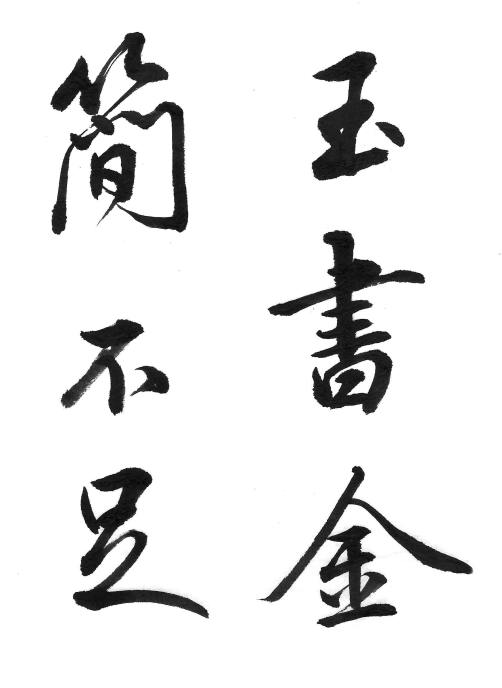 玉書金
簡不足